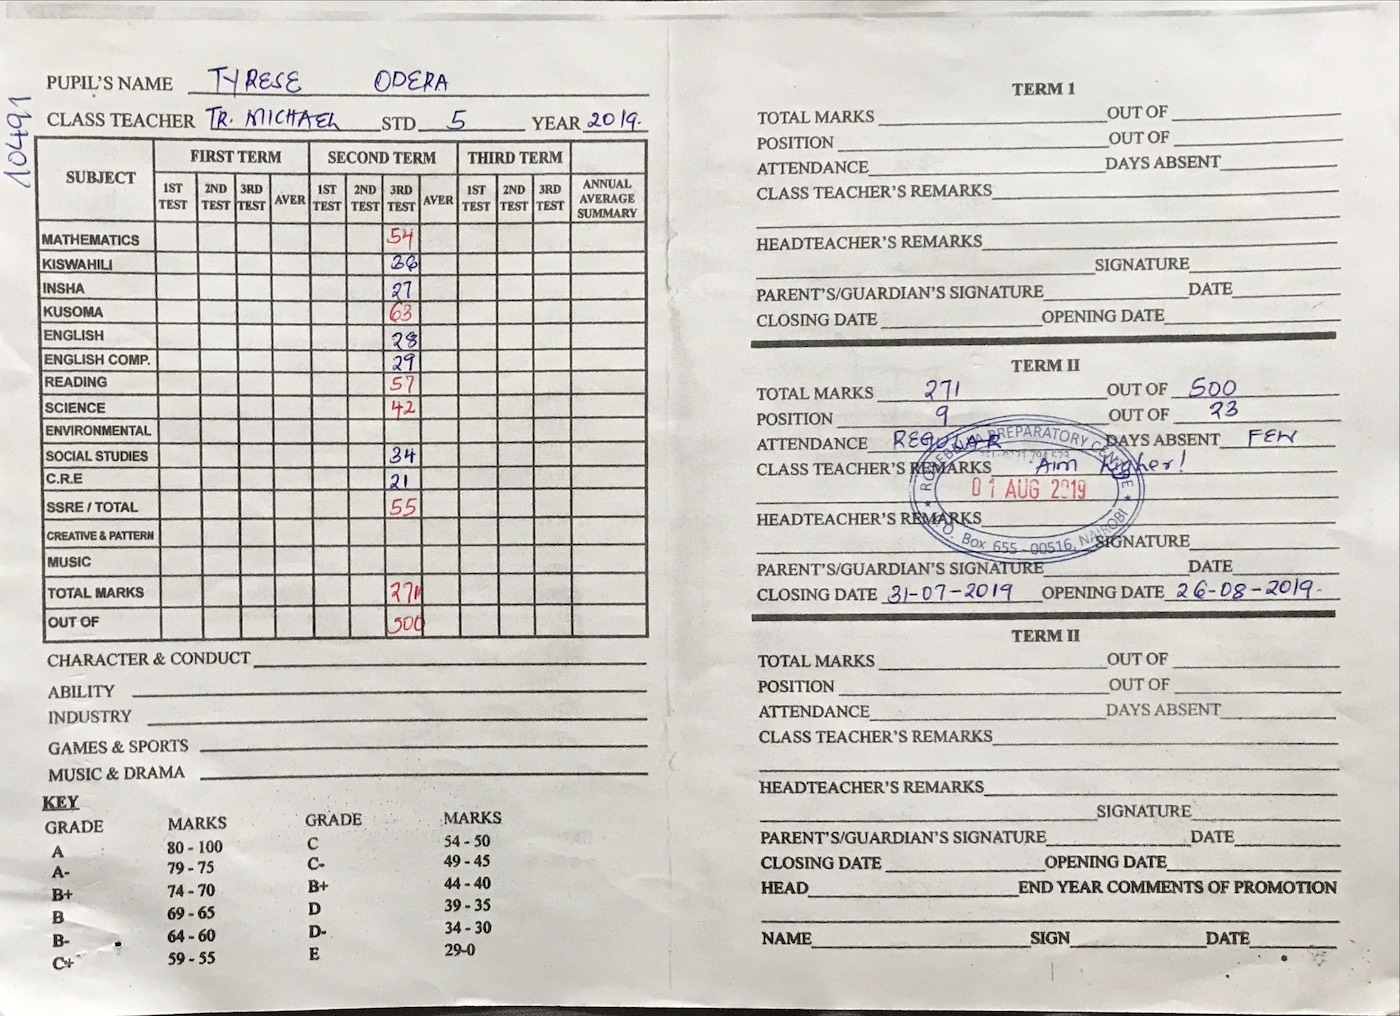 10491
PUPIL'S NAME TYRESE ODERA
CLASS TEACHER TR. MICHAEL STD 5 YEAR 2019.
SUBJECT FIRST TERM SECOND TERM THIRD TERM
1ST TEST 2ND TEST 3RD TEST AVER 1ST TEST 2ND TEST 3RD TEST AVER 1ST TEST 2ND TEST 3RD TEST ANNUAL AVERAGE SUMMARY
MATHEMATICS 54
KISWAHILI
INSHA 27
KUSOMA 63
ENGLISH 28
ENGLISH COMP. 29
READING 57
SCIENCE 42
ENVIRONMENTAL
SOCIAL STUDIES 34
C.R.E 21
SSRE / TOTAL 55
CREATIVE & PATTERN
MUSIC
TOTAL MARKS 271
OUT OF 500
CHARACTER & CONDUCT
ABILITY
INDUSTRY
GAMES & SPORTS
MUSIC & DRAMA
KEY
GRADE MARKS GRADE MARKS
A 80 - 100 C 54 - 50
A- 79 - 75 C- 49 - 45
B+ 74 - 70 B+ 44 - 40
B 69 - 65 D 39 - 35
B- 64 - 60 D- 34 - 30
C+ 59 - 55 E 29-0
TERM 1
TOTAL MARKS OUT OF
POSITION OUT OF
ATTENDANCE DAYS ABSENT
CLASS TEACHER'S REMARKS
HEADTEACHER'S REMARKS
SIGNATURE
PARENT'S/GUARDIAN'S SIGNATURE DATE
CLOSING DATE OPENING DATE
TERM II
TOTAL MARKS 271 OUT OF 500
POSITION 9 OUT OF 23
ATTENDANCE REGULAR DAYS ABSENT FEW
CLASS TEACHER'S REMARKS Aim higher!
PREPARATORY CENTRE
01 AUG 2019
P.O. Box 655 - 00516, NAIROBI
HEADTEACHER'S REMARKS
SIGNATURE
PARENT'S/GUARDIAN'S SIGNATURE DATE
CLOSING DATE 31-07-2019 OPENING DATE 26-08-2019.
TERM II
TOTAL MARKS OUT OF
POSITION OUT OF
ATTENDANCE DAYS ABSENT
CLASS TEACHER'S REMARKS
HEADTEACHER'S REMARKS
SIGNATURE
PARENT'S/GUARDIAN'S SIGNATURE DATE
CLOSING DATE OPENING DATE
HEAD END YEAR COMMENTS OF PROMOTION
NAME SIGN DATE